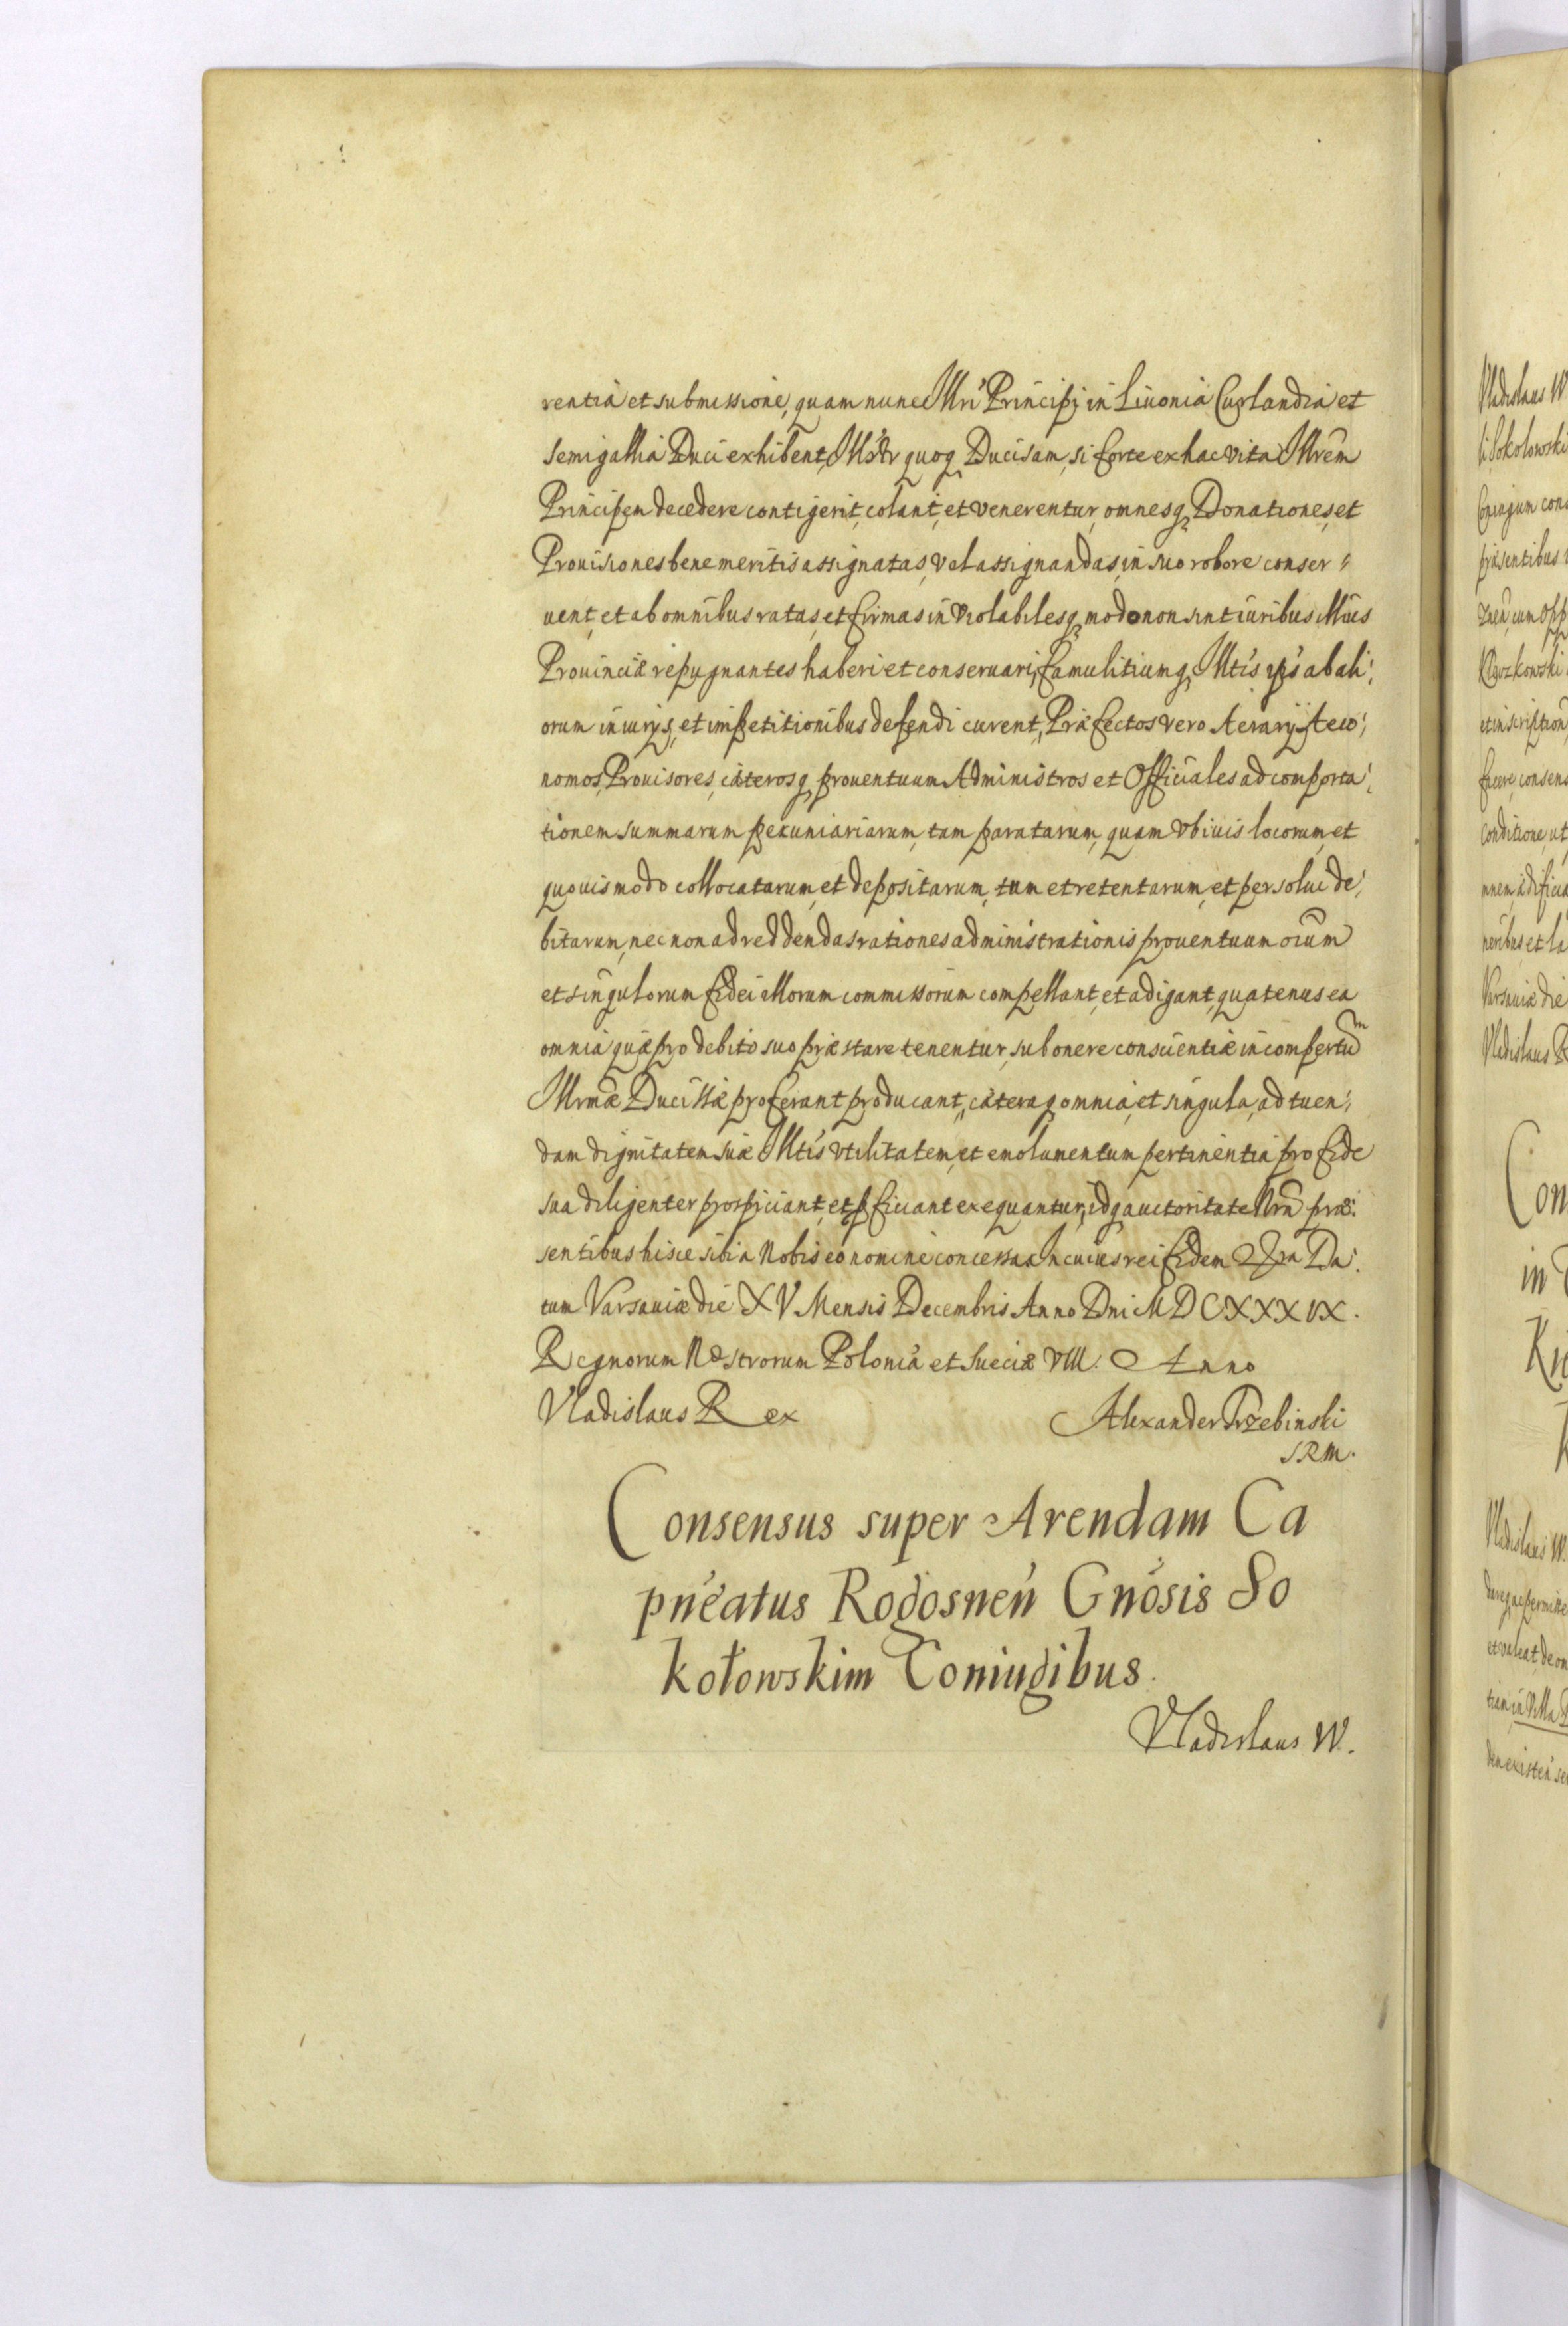 rentia et submissione, quam nunc Illri Principi in Liuonia Curlandia et
Semigallia Duci exhibent, quoq Ducisam, si forte ex hac vita Illrem
Principem decedere contigerit, colant, et venerentur, omnesq Donationes, et
Prouisiones bene meritis assignatas, vel assignandas, in suo robore conser
uent, et ab omnibus ratas, et firmas inviolabilesq, modo non sint iuribus illius
Prouinciæ repugnantes haberi et conseruari, famulitiumq, Illtis ips ab ali
orum iniurys, et impetitionibus defendi curent, Præfectos vero Aerary Aeco
nomos, Prouisores, cæterosq prouentuum Administros et Officiales ad comporta
tionem summarum pecuniariarum, tam paratarum, quam vbiuis locorum, et
quouis modo collocatarum, et depositarum, tum et retentarum, et persolui de
bitarum, nec non ad reddendas rationes administrationis prouentuum oium
et singulorum fidei illorum commissorum compellant, et adigant, quatenus ea
omnia quæ pro debito suo præstare tenentur, sub onere conscientiæ in compertum
Illrmæ Ducissæ proferant producant, cæteraq omnia, et singula, ad tuen
dam dignitatem suæ Illtis vtilitatem, et emolumentum pertinentia pro fide
sua diligenter prospiciant, et pficiant exequantur, idq auctoritate Nra præ
sentibus hisce sibi a Nobis eo nomine concessa. In cuius rei fidem Da
tum Varsauiæ die XV Mensis Decembris Anno Dni MDCXXXIX.
Regnorum Nostrorum Poloniæ et Sueciæ VIII. Anno
Vladislaus Rex Alexander Trzebinski
SRM.
Consensus super Arendam Ca
pneatus Rogosnen Gnosis So
kołowskim Coniugibus.
Vladislaus W.
Vladislaus W
li Sokolowski
præsentibus
et inscription
facere, consens
conditione, ut
neribus, et la
Varsauiæ die
Vladislaus R
Con
in
Vladislaus W.
et valeat de om
tiam in Villa